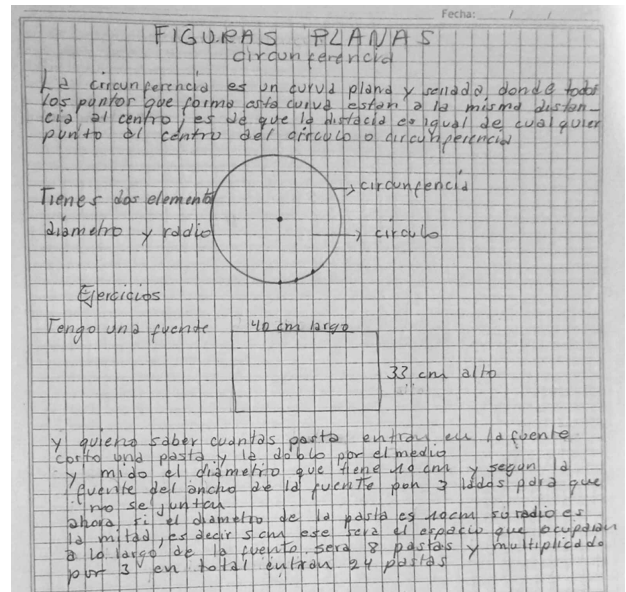 Fecha: / /
FIGURAS PLANAS
circunferencia
La cricunferencia es un curva plana y serrada, donde todos
los puntos que forma asta curva estan a la misma distan-
cia al centro; es de que la distacia es igual de cualquier
punto al centro del circulo o circunferencia
Tienes dos elemento
diámetro y radio
circunfencia
circulo
Ejercicios
Tengo una fuente
40 cm largo
33 cm alto
y quiero saber cuantas pasta entran en la fuente
corto una pasta y la doblo por el medio
y mido el diámetro que tiene 10 cm y segun la
fuente del ancho de la fuente pon 3 lados para que
no se juntan
ahora si el diametro de la pasta es 10cm su radio es
la mitad, es decir 5 cm ese sera el espacio que ocuparan
a lo largo de la fuente sera 8 pastas y multiplicado
por 3 en total entran 24 pastas